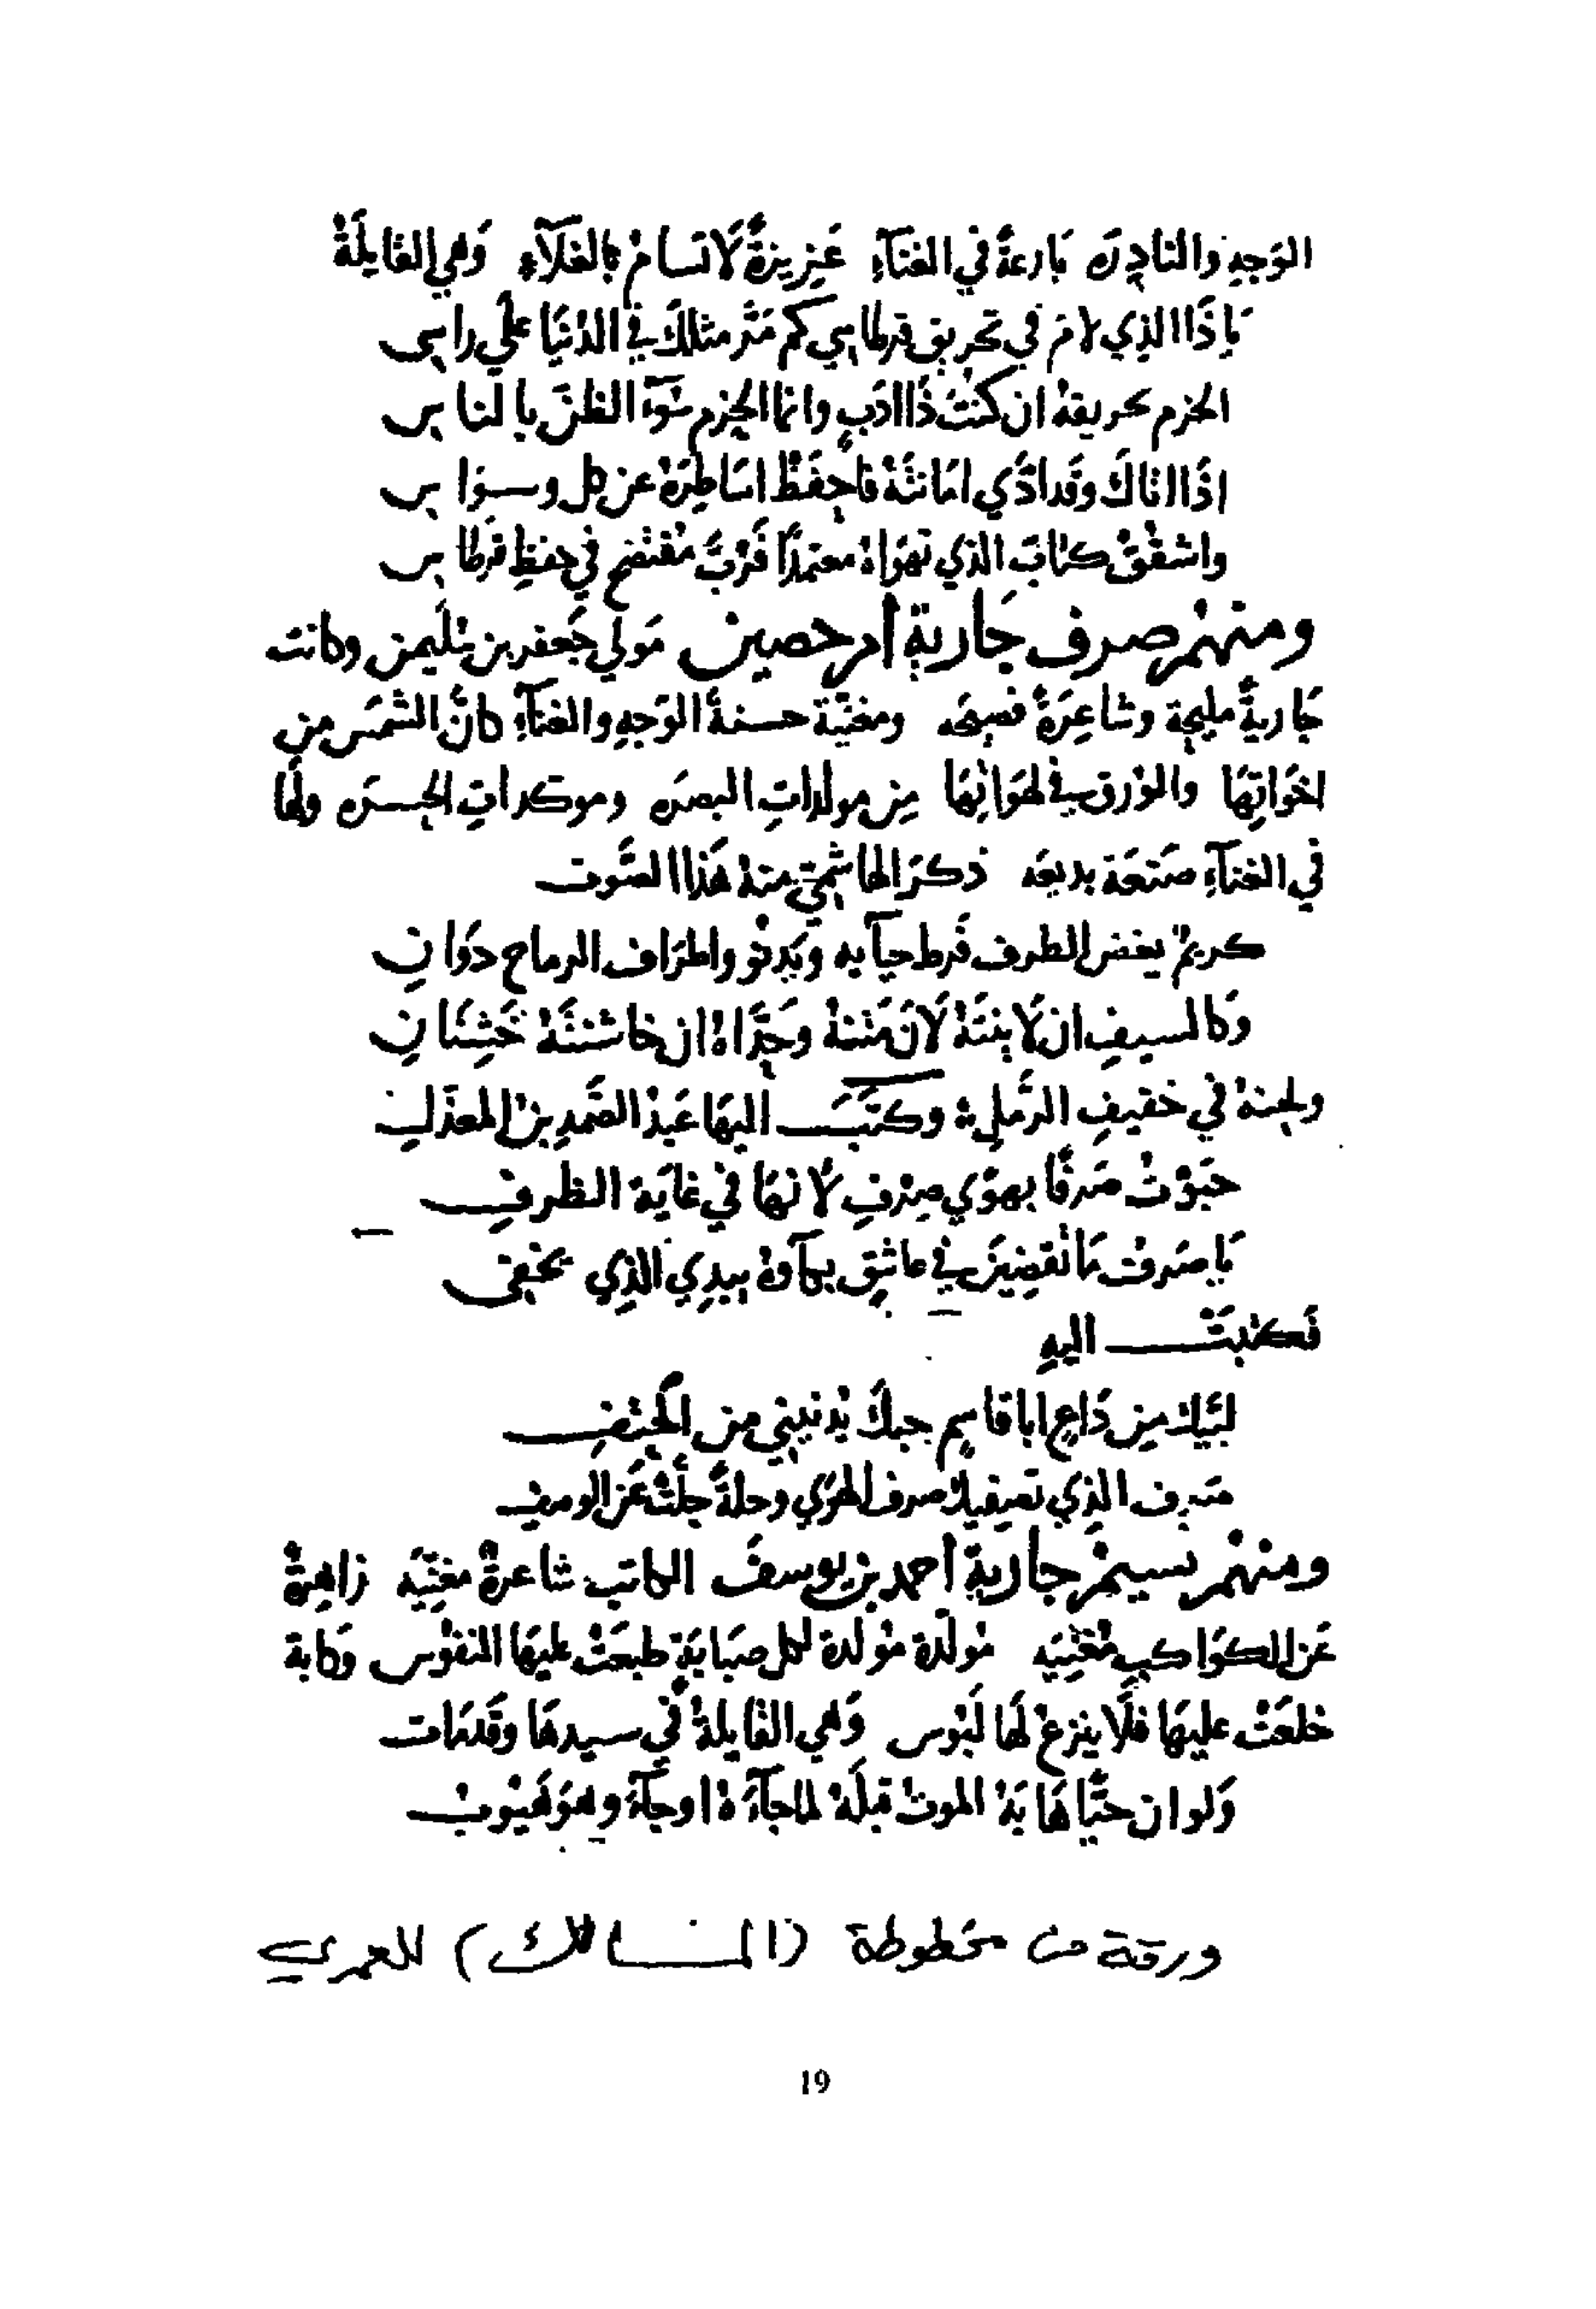 الوَجهِ والنادِرَه بَارعةً في الغنَآءِ عَزِيزةً لَا تسَامُ بالغلَآءِ وَهي القَايلَةُ
يَا ذَا الذِي لامَ في تحريق قرطاسِي كم مَرَّ مثلكَ في الدُنيَا علَي راسِي
الحزم تحريقهُ ان كنتَ ذَا ادَبٍ وانما الحزم سُوءُ الظنّ بالناسِ
اذَا اتاكَ وقَد ادَّي امَانتَهُ فاحفَظْ اسَاطِرَهُ عن كل وسواسِ
واشقُقْ كتابَ الذي تهوَاهُ معتمدًا فَرُبَّ مفتضحٍ في حفظِ قرطاسِ
ومنهُمْ صرف جَارية ام حصين مَولي جَعفر بن سُلَيمن وكانت
جَاريةً مليحة وشاعِرَةً فصيحَه ومغنيّة حسنةَ الوَجهِ والغنَآءِ كانَّ الشمسَ مِن
اخوَاتِهَا والوُرق في لهَوَاتِهَا مِن مولداتِ البصرَه وموكداتِ الحسرَه ولهَا
في الغنَآءِ صنعَة بديعَه ذكرَ الهَاشميّ منهُ هَذا الصَّوت
كريمٌ يغضّ الطرف فَرط حيآيه ويَدنُو واطرَاف الرماح دوَانِ
وَكالسيفِ ان لَاينتَهُ لَانَ مَتنهُ وحَدَّاهُ ان خاشنتَهُ خَشِنَانِ
ولحنهُ في خفيفِ الرَّملِ وكتَبَ اليهَا عَبدُ الصَّمدِ بنُ المعذّلِ
حبَوْتُ صَرفًا بهوًي صِرْفِ لانهَا في غايَة الظرفِ
يَا صَرفُ مَا تقضِينَ في عاشقٍ بكآوهُ يبدِي الذِي يخفِي
فكتبَتْ اليهِ
لبّيكَ مِن دَاعٍ ابا قاسمٍ حبكَ يُدنيني من الحتفِ
صَرف الذي تصفيكَ صرف الهوَي وحلةً جلّتْ عَن الوصفِ
ومنهُمْ نسيمُ جارية احمد بن يوسفَ الكاتب شاعرةٌ مغنيَّه زاهِرةٌ
عَن الكوَاكبِ مُغنيَه مُولّدة مُولّدة لكل صبَابَةٍ طبعَتْ عليهَا النفوُس وكابة
خلعَتْ عليهَا فلَا ينزعُ لهَا لَبُوس وَهي القايلةُ في سيدهَا وقَد مَات
وَلو ان حيًّا هَابَهُ الموتُ قبلَهُ لمَا جآءَهُ اوجآءَ وهوَ هَيُوبُ
ورقة من مخطوطة (المسالك) للعمري
19